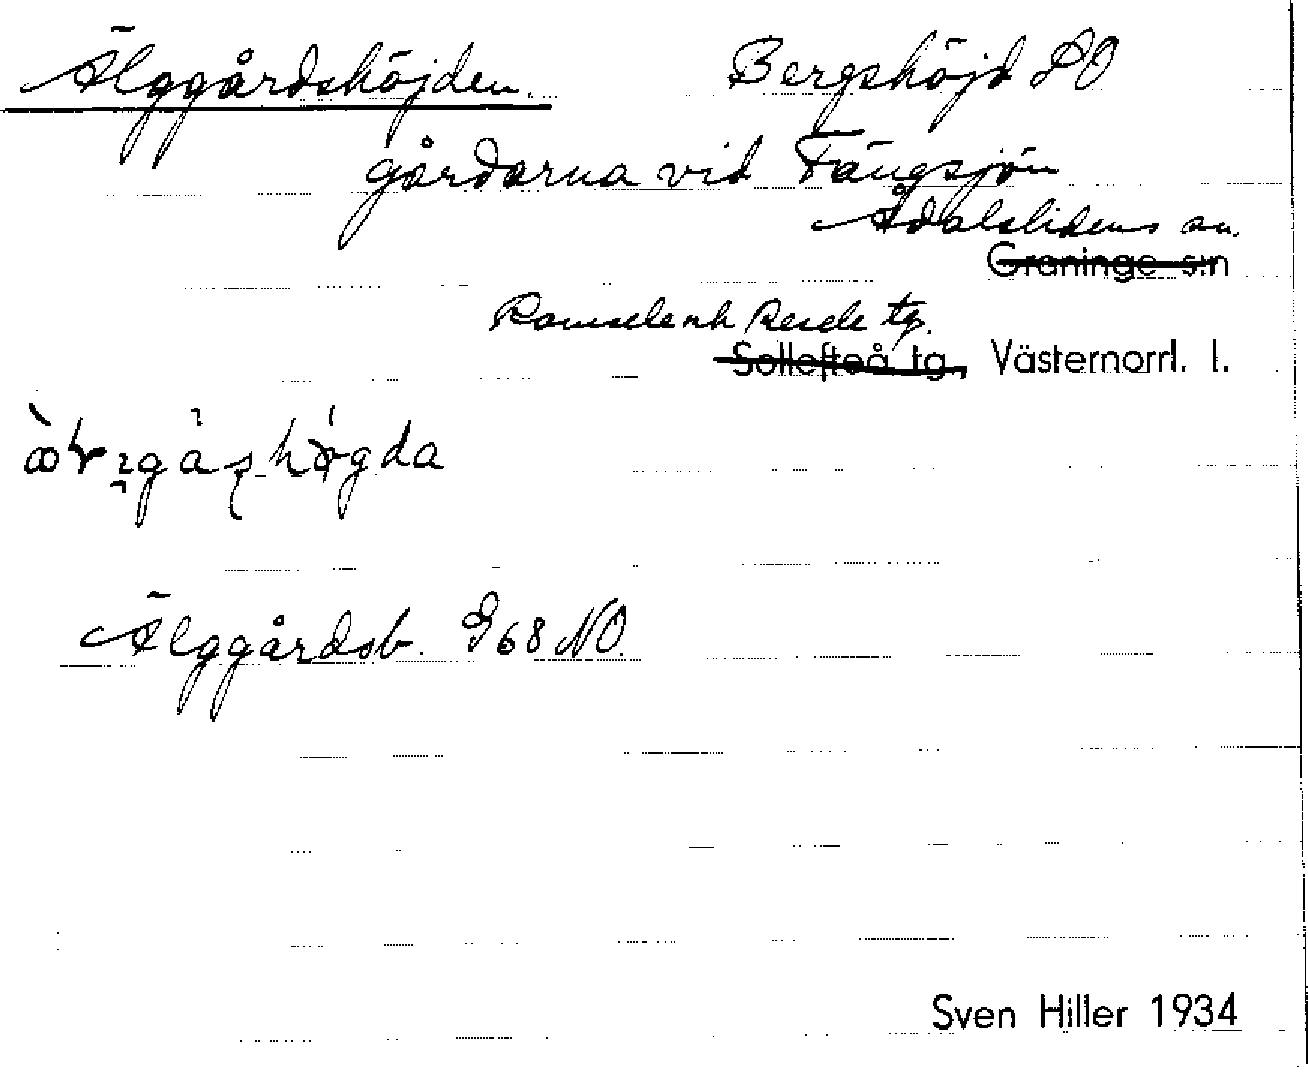 Älggårdshöjden. Bergshöjd SO
gårdarna vid Tängsjön
Ådalslidens sn.
Graninge s:n
Ramsele och Resele tg.
Sollefteå tg., Västernorrl. l.
Älggårdsb. G68 NO.
Sven Hiller 1934